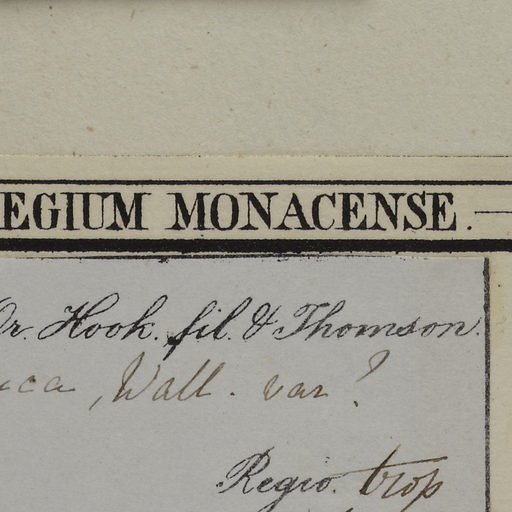 EGIUM MONACENSE.
Dr. Hook. fil. & Thomson.
Wall. var?
Regio. trop